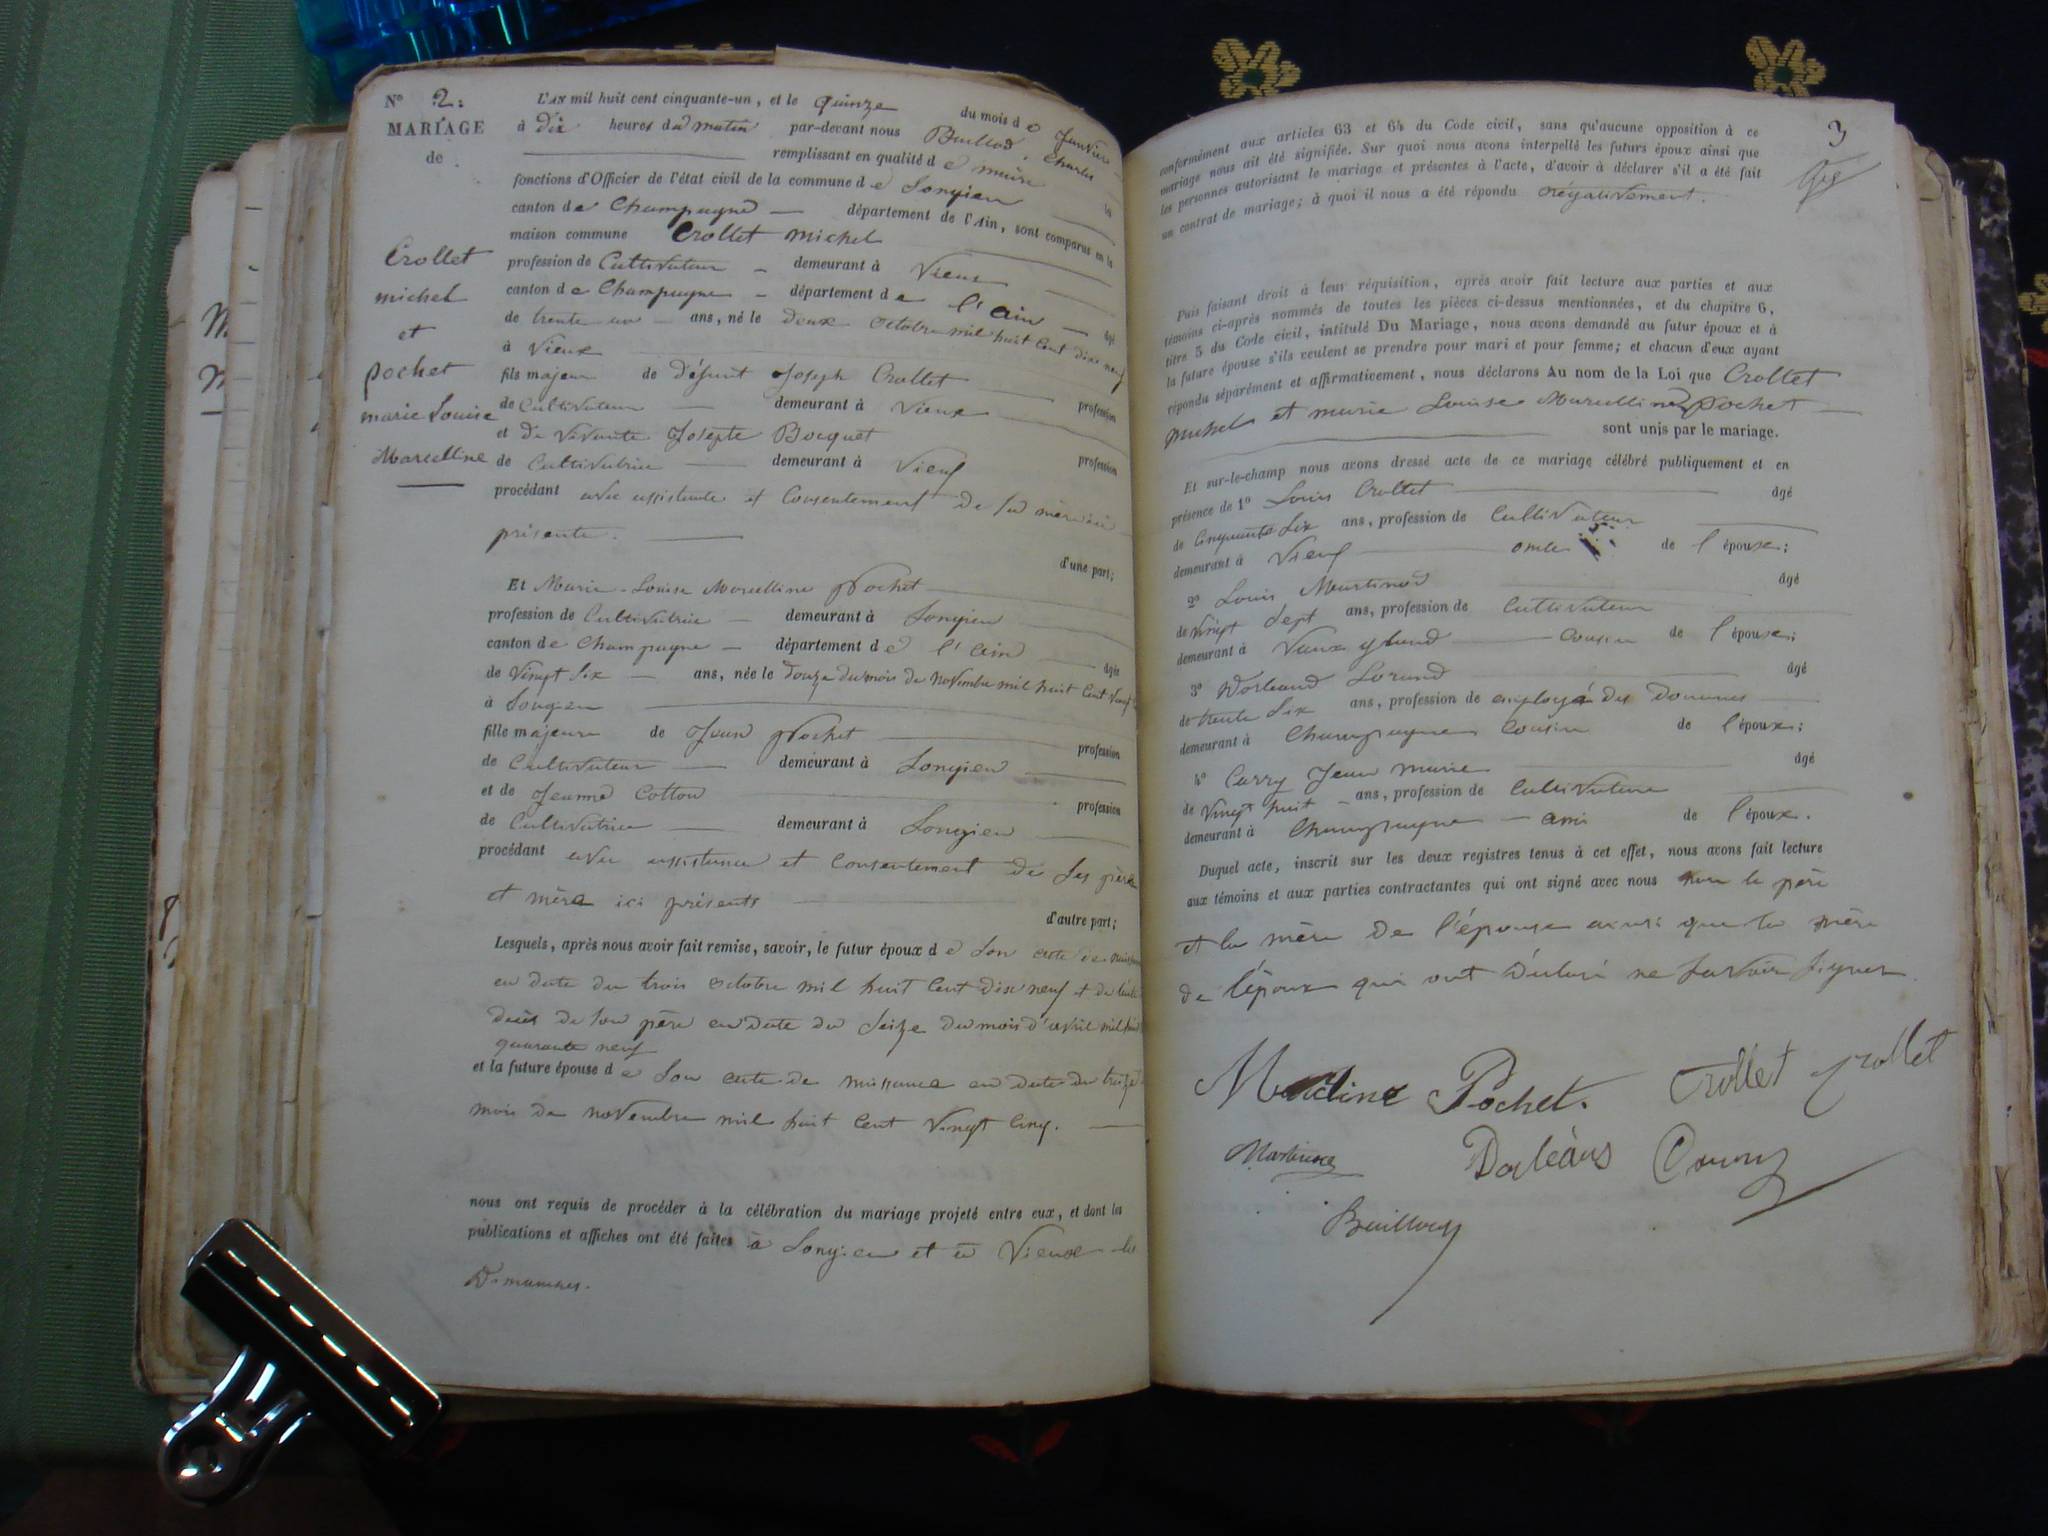 N° 2.
MARIAGE
de
Crollet
michel
et
pochet
marie Louise
Marcelline
L'AN mil huit cent cinquante-un, et le quinze du mois de Janvier
à dix heures du matin par-devant nous Charles
remplissant en qualité de maire les
fonctions d'Officier de l'état civil de la commune de Songieu
canton de Champagne département de l'Ain, sont comparus en la
maison commune Crollet michel
profession de Cultivateur demeurant à Vieux
canton de Champagne département de l'ain âgé
de trente un ans, né le deux octobre mil huit cent dix neuf
à Vieux
fils majeur de défunt Joseph Crollet profession
de Cultivateur demeurant à Vieux
et de vivante Josephte Bocquet profession
de Cultivatrice demeurant à Vieux
procédant avec assistance et Consentement de sa mère ici
présente.
d'une part;
Et Marie-Louise Marcelline Pochet
profession de Cultivatrice demeurant à Songieu
canton de Champagne département de l'ain âgée
de Vingt Six ans, née le douze du mois de novembre mil huit Cent vingt
à Songieu
fille majeure de Jean Pochet profession
de Cultivateur demeurant à Songieu
et de Jeanne Cotton profession
de Cultivatrice demeurant à Songieu
procédant avec assistance et Consentement de ses père
et mère ici présents
d'autre part;
Lesquels, après nous avoir fait remise, savoir, le futur époux de son acte de naissance
en date du trois octobre mil huit Cent dix neuf et de l'acte
décès de son père en date du Seize du mois d'avril mil huit
quarante neuf
et la future épouse de son acte de naissance en date du treize
mois de novembre mil huit Cent vingt Cinq.
nous ont requis de procéder à la célébration du mariage projeté entre eux, et dont les
publications et affiches ont été faites à Songieu et à Vieux les
Dimanches.
3
conformément aux articles 63 et 64 du Code civil, sans qu'aucune opposition à ce
mariage nous ait été signifiée. Sur quoi nous avons interpellé les futurs époux ainsi que
les personnes autorisant le mariage et présentes à l'acte, d'avoir à déclarer s'il a été fait
un contrat de mariage; à quoi il nous a été répondu négativement.
Puis faisant droit à leur réquisition, après avoir fait lecture aux parties et aux
témoins ci-après nommés de toutes les pièces ci-dessus mentionnées, et du chapitre 6,
titre 5 du Code civil, intitulé Du Mariage, nous avons demandé au futur époux et à
la future épouse s'ils veulent se prendre pour mari et pour femme; et chacun d'eux ayant
répondu séparément et affirmativement, nous déclarons Au nom de la Loi que Crollet
michel et marie Louise Marcelline pochet
sont unis par le mariage.
Et sur-le-champ nous avons dressé acte de ce mariage célébré publiquement et en
présence de 1° Louis Crollet âgé
de Cinquante Six ans, profession de Cultivateur
demeurant à Vieux oncle de l'époux;
2° Louis Martinod âgé
de vingt Sept ans, profession de Cultivateur
demeurant à cousin de l'épouse;
3° âgé
de trente Six ans, profession de employé des Douanes
demeurant à Champagne cousin de l'époux;
4° Jean Marie âgé
de Vingt huit ans, profession de Cultivateur
demeurant à Champagne ami de l'époux.
Duquel acte, inscrit sur les deux registres tenus à cet effet, nous avons fait lecture
aux témoins et aux parties contractantes qui ont signé avec nous le père
et la mère de l'épouse ainsi que la mère
de l'époux qui ont déclaré ne savoir signer
Pochet. Crollet Crollet
Dorléans